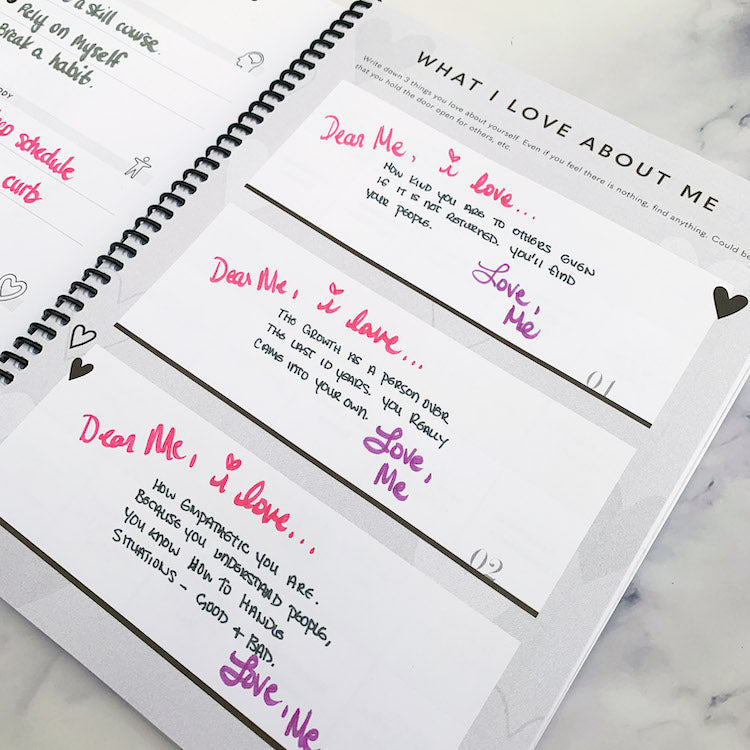 a skill course.
Rely on Myself
Break a habit.
schedule
WHAT I LOVE ABOUT ME
Write down 3 things you love about yourself. Even if you feel there is nothing, find anything. Could be
that you hold the door open for others, etc.
Dear Me, i love...
HOW KIND YOU ARE TO OTHERS EVEN
IF IT IS NOT RETURNED. YOU'LL FIND
YOUR PEOPLE.
Love,
Me
01
Dear Me, i love...
THE GROWTH AS A PERSON OVER
THE LAST 10 YEARS. YOU REALLY
CAME INTO YOUR OWN.
Love,
Me
02
Dear Me, i love...
HOW EMPATHETIC YOU ARE.
BECAUSE YOU UNDERSTAND PEOPLE,
YOU KNOW HOW TO HANDLE
SITUATIONS - GOOD + BAD.
Love, Me